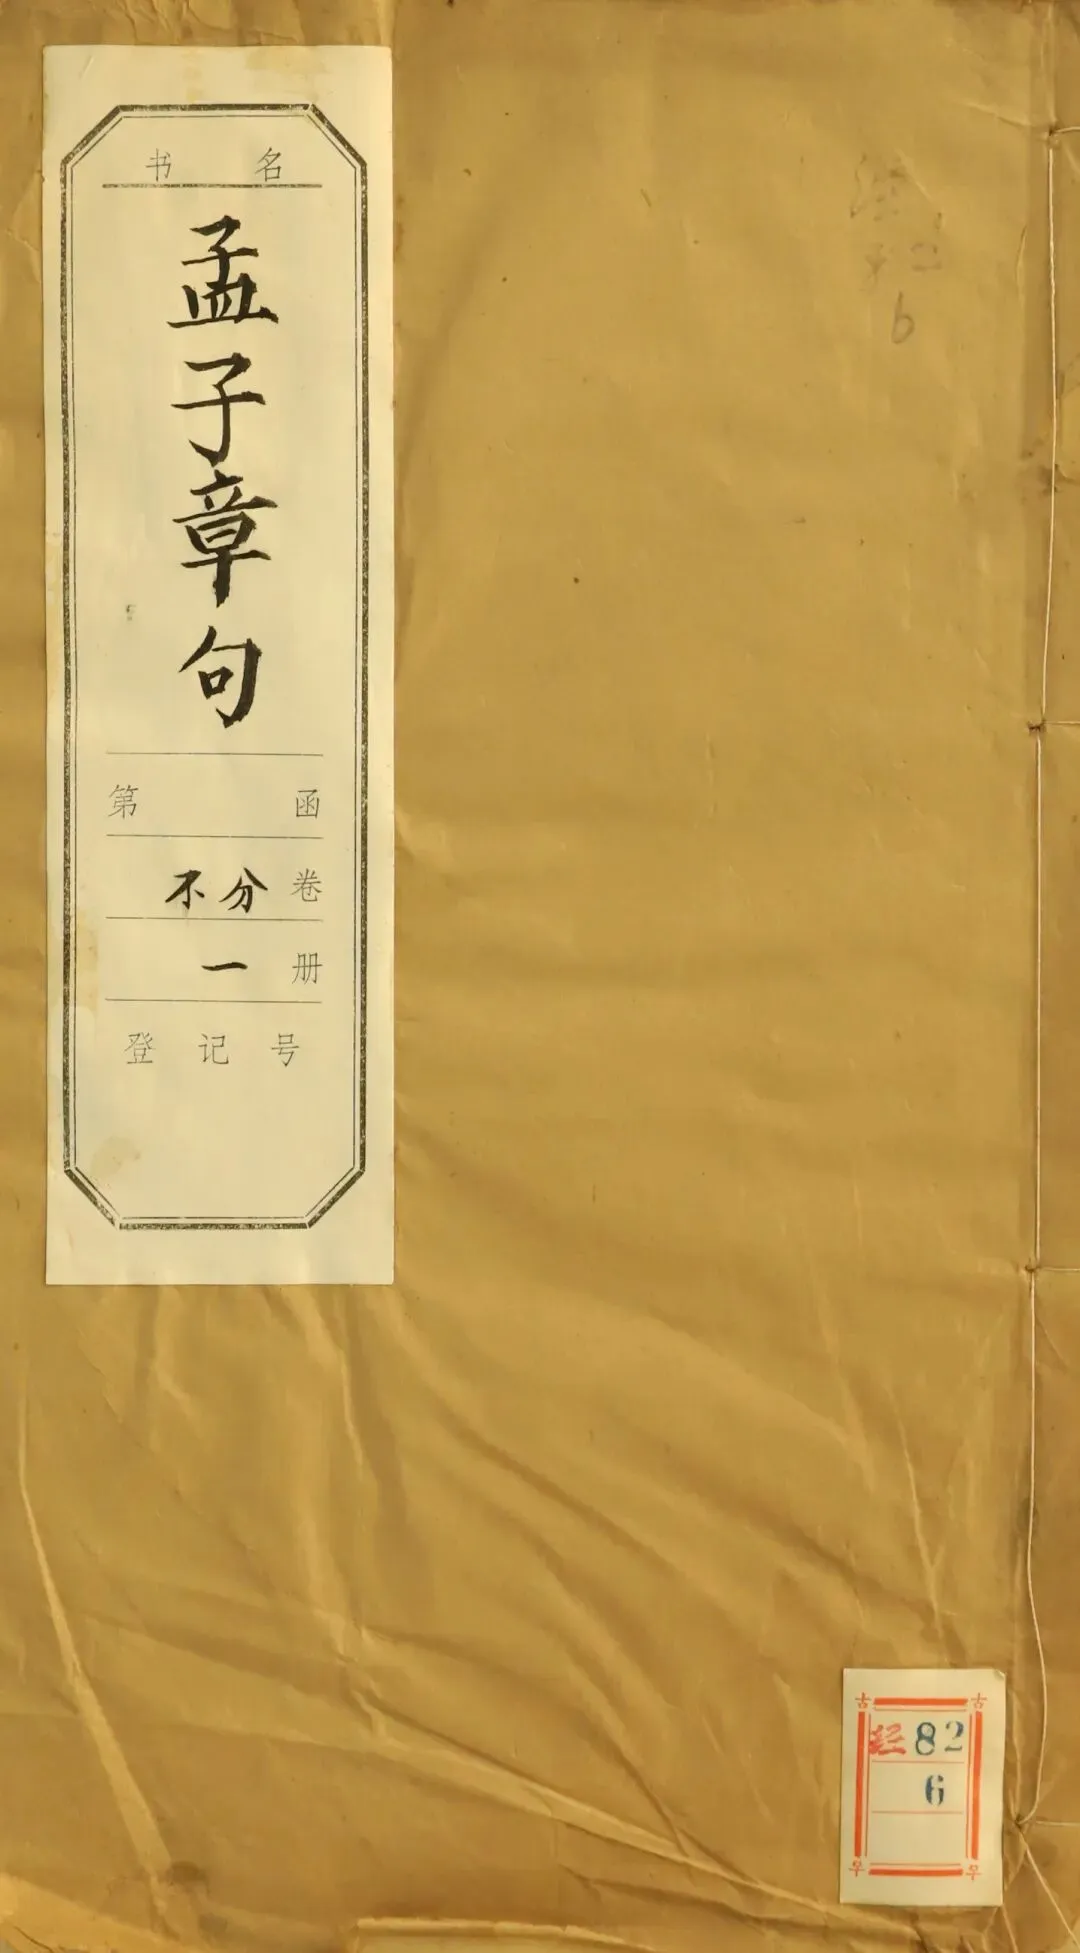 书名
孟子章句
第 函
不分卷
一 册
登记号
古 古
经 82
6
古 古
6